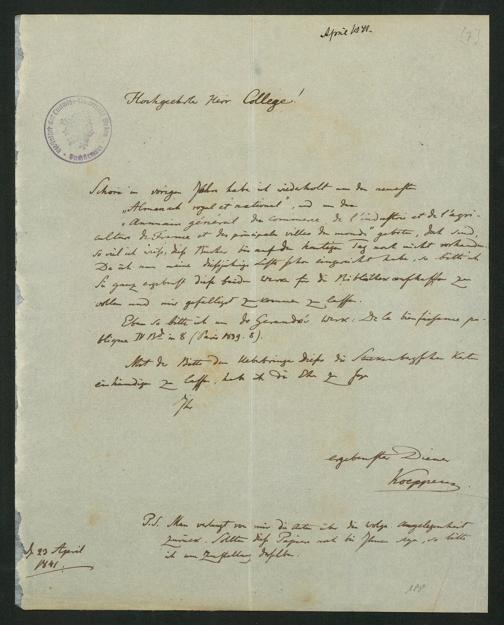 April 1841.
[7]
Hochgeehrter Herr College!
Schon im vorigen Jahre habe ich wiederholt um den neuesten
„Almanach royal et national", und um den
„Annuaire général du commerce, de l'industrie et de l'agri-
culture de France et des principales villes du monde" gebeten, doch sind,
so viel ich weiß, diese Bücher bis auf den heutigen Tag noch nicht vorhanden.
Da ich nun meine dießjährige Liste schon eingereicht habe, so bitte ich
Sie ganz ergebenst diese beiden Werke für die Bibliothek zu
wollen und mir gefälligst zukommen zu lassen.
Eben so bitte ich um de Gerando's Werk: De la bienfaisance pu-
blique IV Bde in 8 (Paris 1839. 8).
Mit der Bitte dem Ueberbringer dieses die Karte
einhändigen zu lassen, habe ich die Ehre zu seyn
Ihr
ergebenster Diener
Koeppen
P.S. Man verlangt von mir die Acten über die Wolga Angelegenheit
zurück. Sollten diese Papiere noch bei Ihnen seyn, so bitte
ich um Zustellung derselben.
d. 23 April
1841.